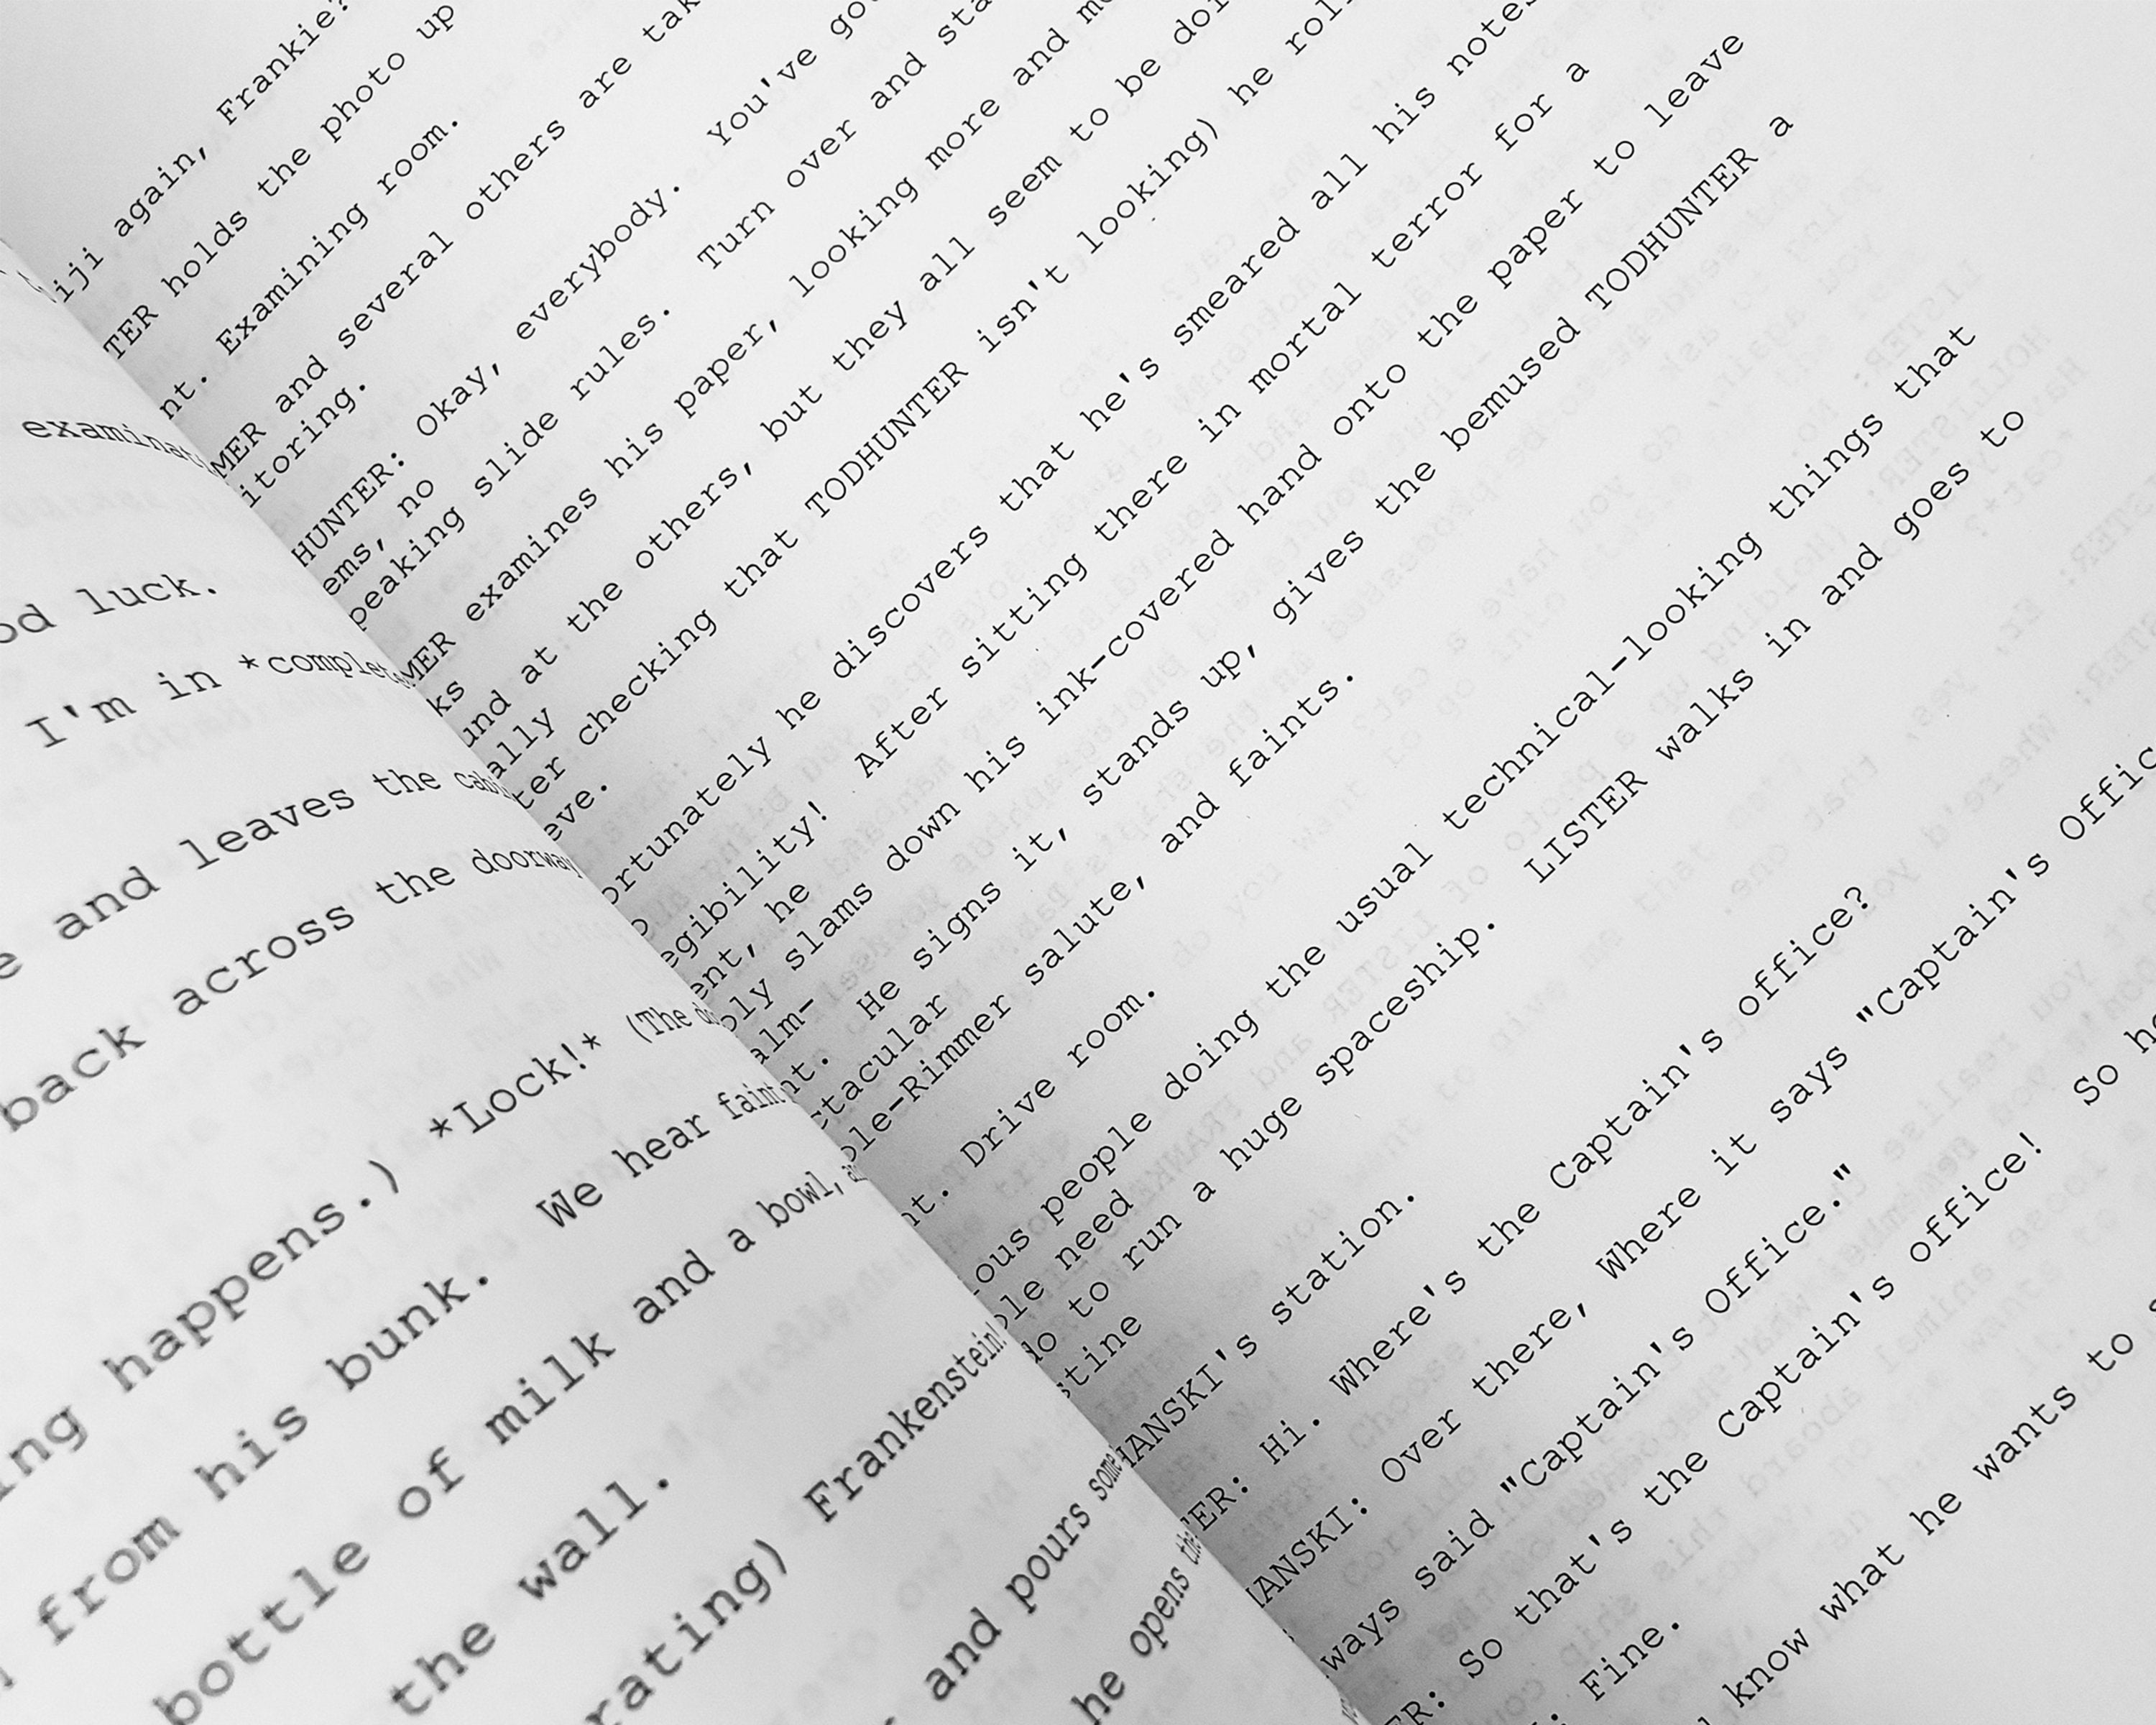 examinat
od luck.
I'm in *complete
e and leaves the cab
back across the doorway
ing happens.) *Lock!* (The d
from his bunk. We hear faint
bottle of milk and a bowl, a
the wall.
rating) Frankenstein!
and pours some
he opens the
iji again, Frankie?
TER holds the photo up
nt. Examining room.
MER and several others are tak
itoring.
HUNTER: Okay, everybody. You've go
ems, no
peaking slide rules. Turn over and sta
MER examines his paper, looking more and mo
ks
und at the others, but they all seem to be doi
ally
ter checking that TODHUNTER isn't looking) he rol
eve.
ortunately he discovers that he's smeared all his notes
o
egibility! After sitting there in mortal terror for a
ent, he
oly slams down his ink-covered hand onto the paper to leave
alm-
nt. He signs it, stands up, gives the bemused TODHUNTER a
ctacular
ole-Rimmer salute, and faints.
nt. Drive room.
ous people doing the usual technical-looking things that
ole need
do to run a huge spaceship. LISTER walks in and goes to
stine
HANSKI's station.
TER: Hi. Where's the Captain's office?
HANSKI: Over there, Where it says "Captain's Offic
ways said "Captain's Office."
ER: So that's the Captain's office! So he
: Fine.
know what he wants to